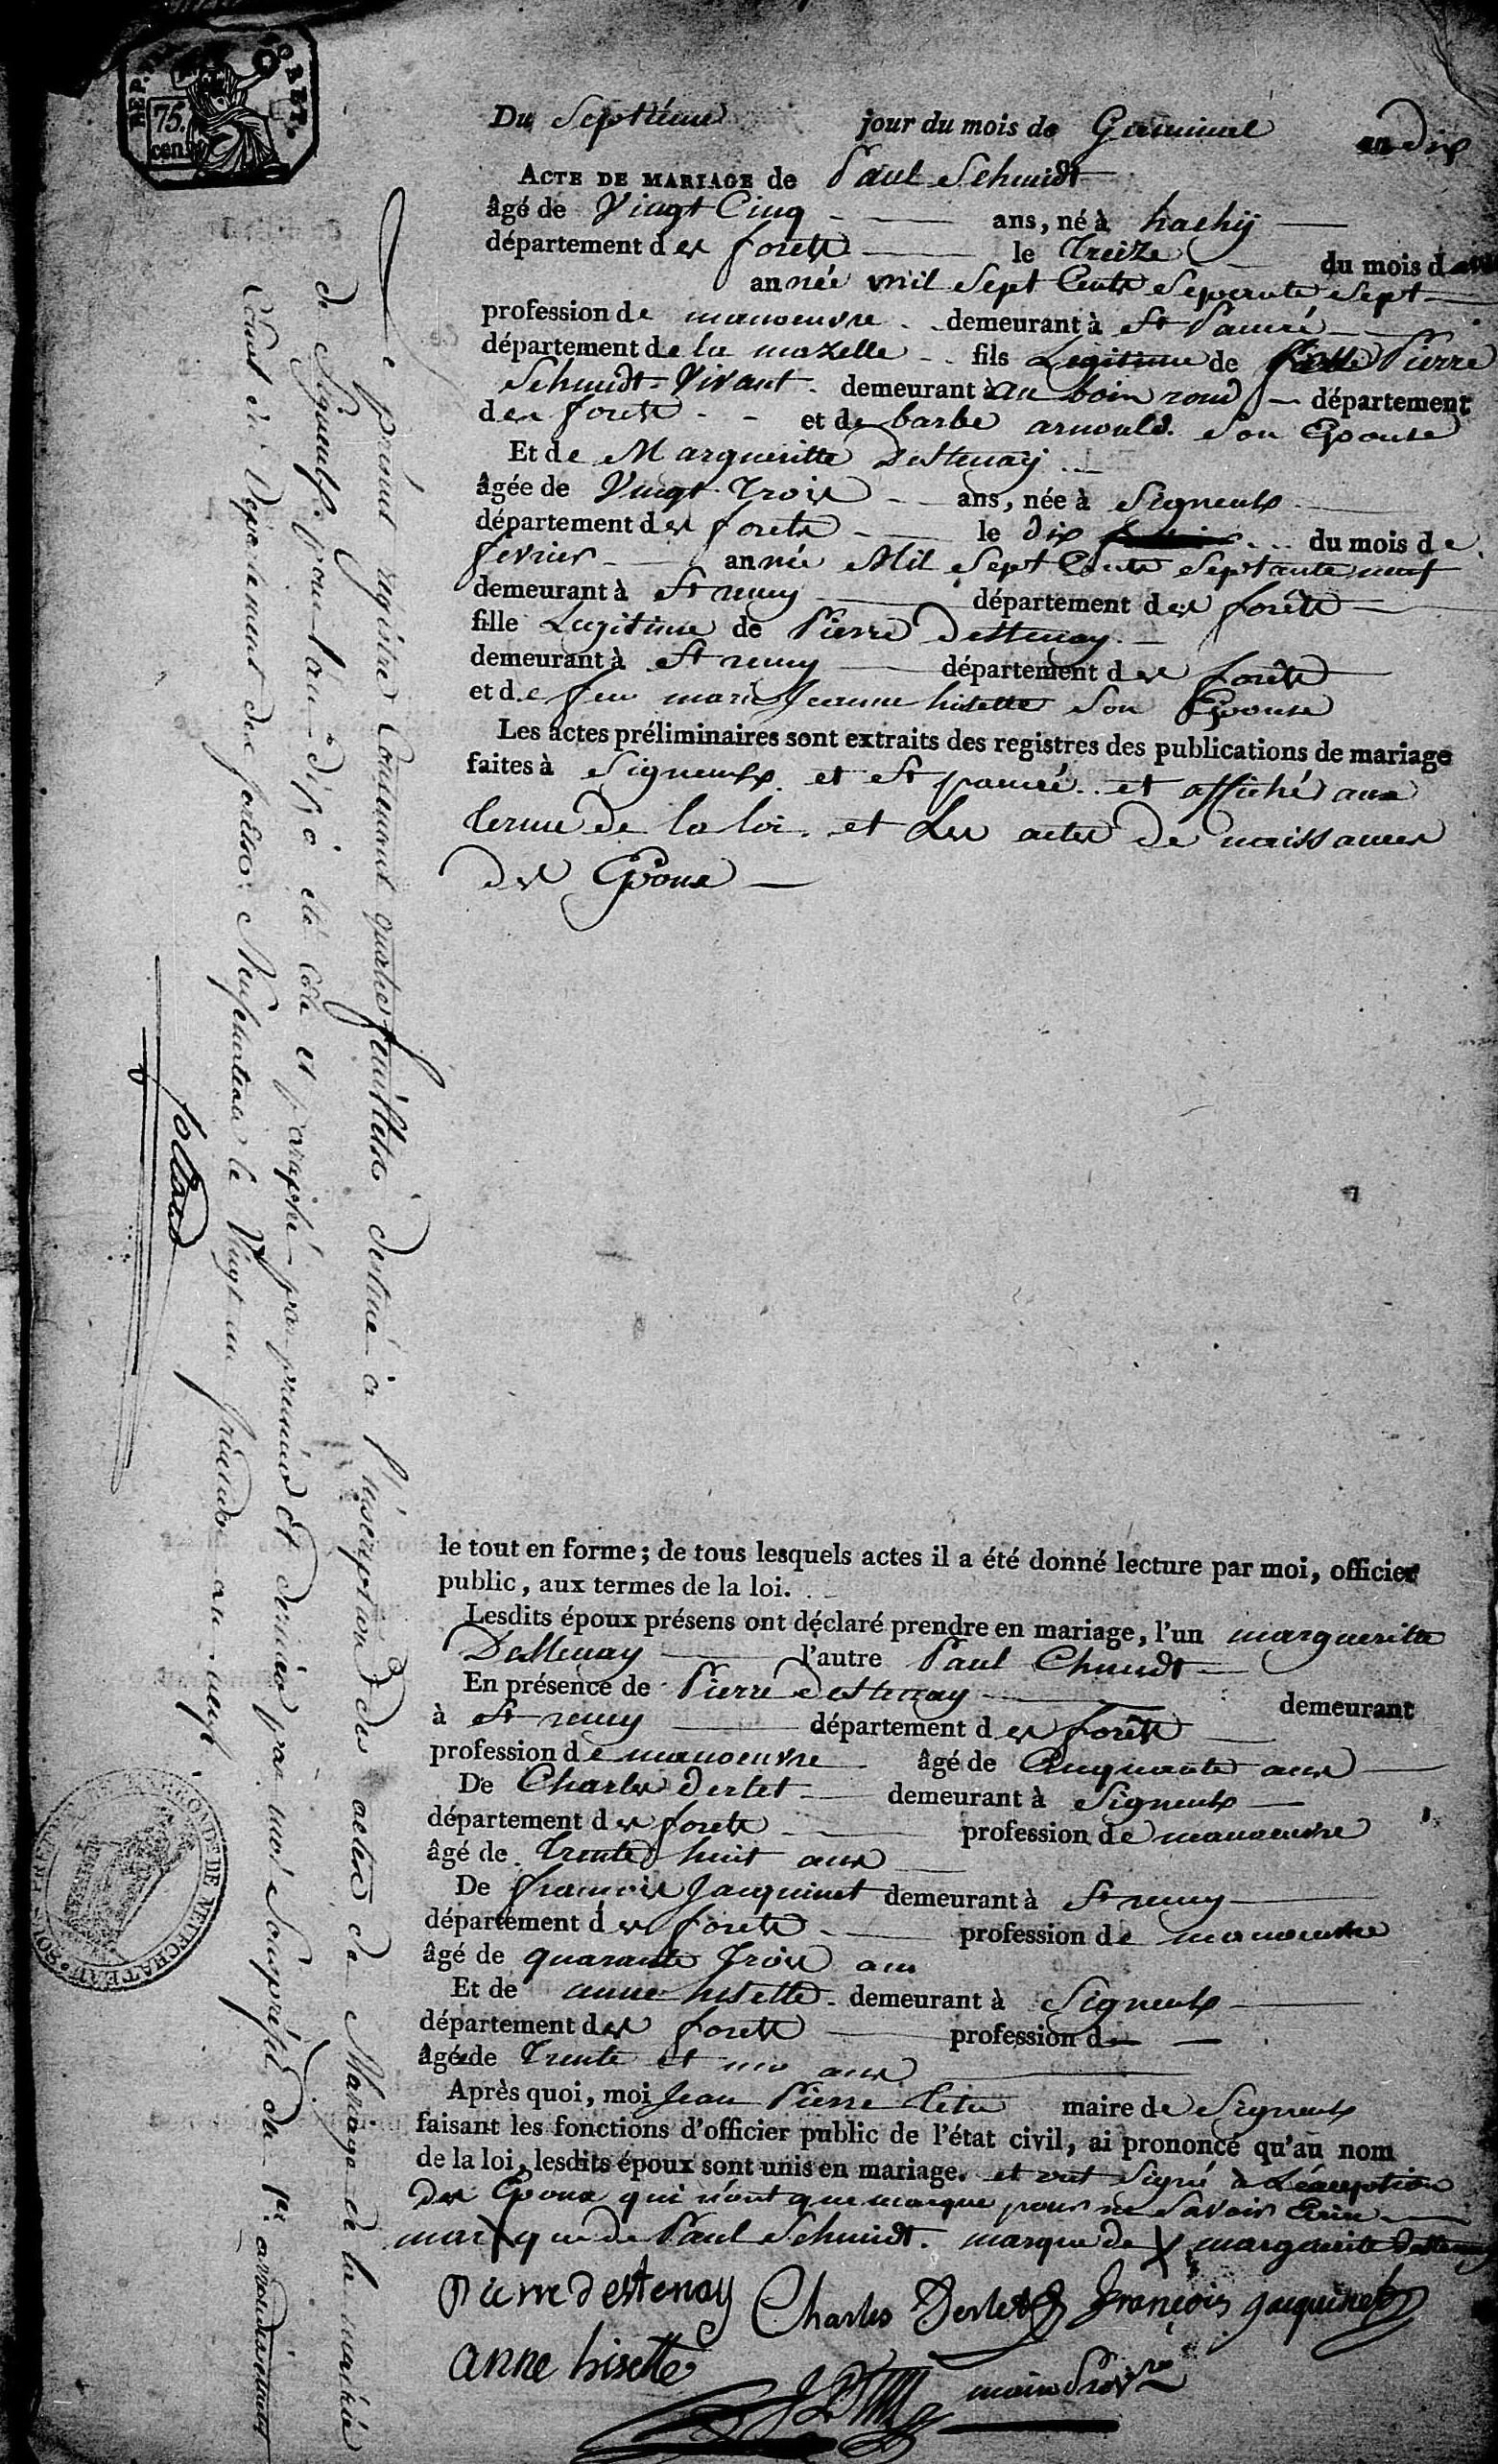 REP. 75. cen.
Du Septième jour du mois de Germinal an Dix
ACTE DE MARIAGE de Paul Schmidt
âgé de Vingt Cinq ans, né à hachÿ
département des forets le Treize du mois d
année mil Sept Cents Septante Sept
profession de manoeuvre demeurant à St Pancré
département de la mozelle fils Legitime de Pierre
Schmidt Vivant demeurant à au bois rond département
des forets et de barbe arnould Son Epouse
Et de Margueritte Destenaÿ
âgée de Vingt Trois ans, née à Signeulx
département des forets le dix du mois de
fevrier année Mil Sept Cents Septante neuf
demeurant à St remy département des forêts
fille Legitime de Pierre Destenay
demeurant à St remy département des forêts
et de feu marie Jeanne hisette Son Epouse
Les actes préliminaires sont extraits des registres des publications de mariage
faites à Signeulx et St pancré et affiché aux
terme de la loi et Les actes de naissances
des Epoux
le tout en forme; de tous lesquels actes il a été donné lecture par moi, officier
public, aux termes de la loi.
Lesdits époux présens ont déclaré prendre en mariage, l'un margueritte
Destenay l'autre Paul Chmidt
En présence de Pierre Destenay demeurant
à St remy département des forêts
profession de manoeuvre âgé de Cinquante ans
De Charles Derlet demeurant à Signeulx
département des forets profession de manoeuvre
âgé de Trente huit ans
De francois Jacquinet demeurant à St remy
département des forets profession de manoeuvre
âgé de quarante Trois ans
Et de anne hisette demeurant à Signeulx
département des forets profession de
âgée de Trente et un ans
Après quoi, moi Jean Pierre maire de Signeulx
faisant les fonctions d'officier public de l'état civil, ai prononcé qu'au nom
de la loi, lesdits époux sont unis en mariage. et ont Signé à Léxception
des Epoux qui n'ont que marque pour ne Savoir Ecrire
marque de Paul Schmidt. marque de marguerite Destenay
Pierre destenay Charles Derlet François jacquinet
anne hisette
maire
Le présent registre Contenant quatre feuillets destiné à l'inscription des actes de Mariage de la mairie
de Signeulx pour l'an dix, a été Coté et paraphé par premier et dernier par moi Souspréfet du 1er arrondissement
Com.al du Département des forêts. Neufchateau le Vingt un fructidor an neuf
Collard
SOUS-PREFET DE NEUFCHATEAU